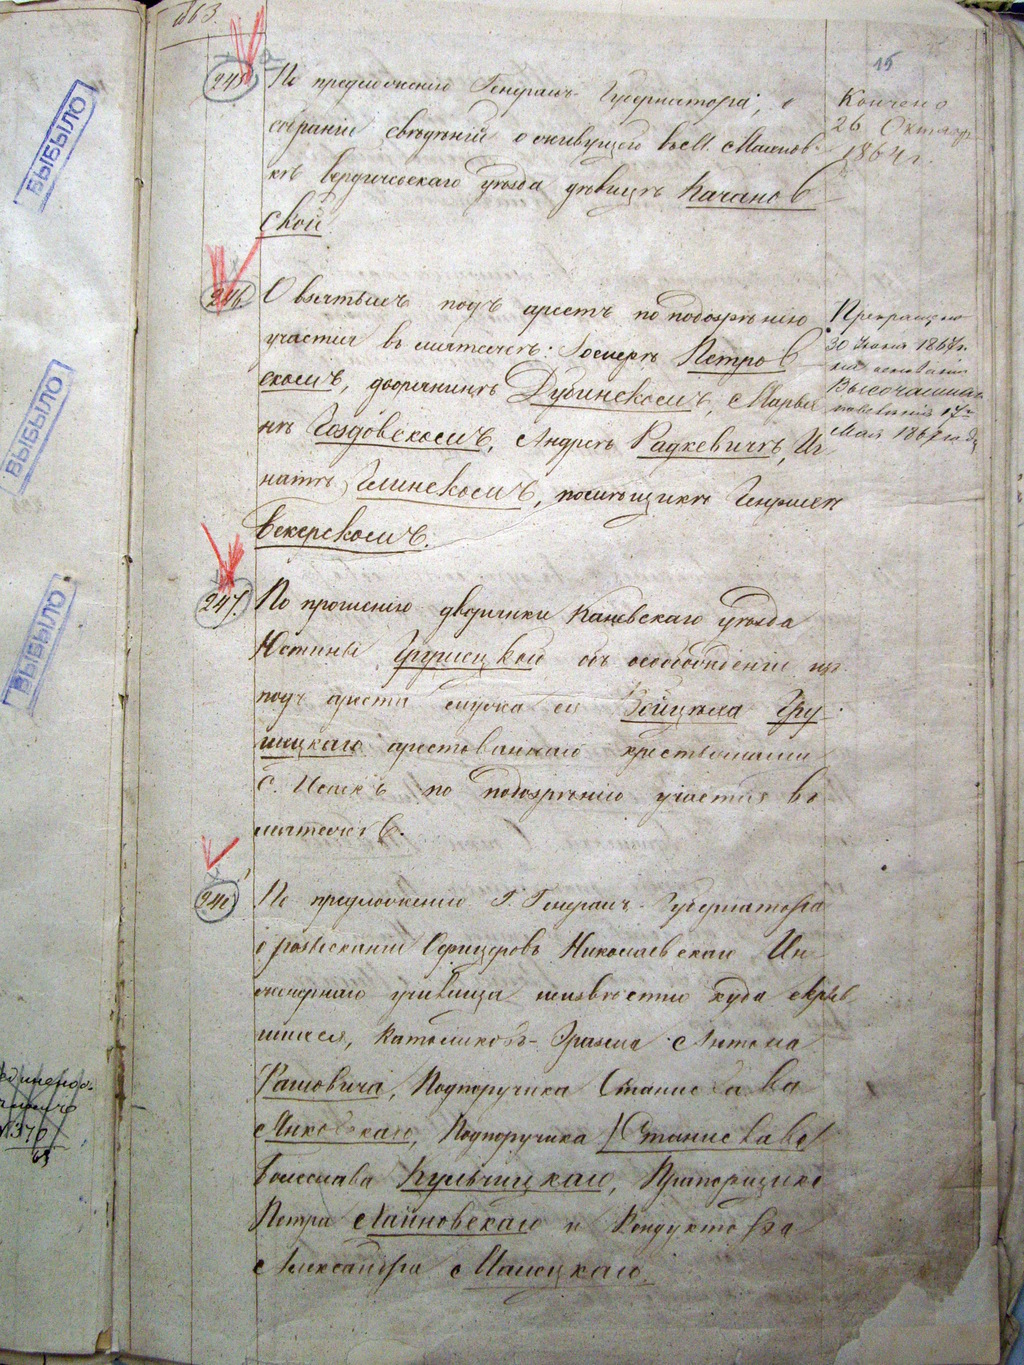 1863.
15
245
По предложенію Генералъ-Губернатора, о
собраніи свѣдѣній о живущего въ М. Махнов-
кѣ Бердичевскаго уѣзда дѣвицѣ Качанов
ской
Кончено
26 Октябр
1864 г.
246.
О взятыхъ подъ арестъ по подозрѣнію
участія въ мятежѣ: Іосифѣ Петров
скомъ, дворянинѣ Дубинскомъ, Марья
нѣ Гоздовскомъ, Андреѣ Радкевичѣ, Иг
натѣ Глинскомъ, помѣщикѣ Генрихѣ
Бекерскомъ.
Прекращено
30 Іюня 1867 г.
на основаніи
Высочайшаго
повелѣнія 17го
Мая 1867 года
247.
По прошенію дворянки Каневскаго уѣзда
Юстины Грушецкой объ освобожденіи изъ
подъ ареста мужа ея Войцѣха Гру
шецкаго арестованнаго крестьянами
С. Исаекъ по подозрѣнію участія въ
мятежѣ.
248
По предложенію Г. Генералъ-Губернатора
о розысканіи Офицеровъ Николаевской Ин-
женернаго училища неизвѣстно куда скрыв
шихся, католиковъ- Эразма Антона
Рашовича, Подпоручика Станислава
Янковскаго, Подпоручика (Станислава)
Болеслава Кульчицкаго, Прапорщика
Петра Лайновскаго и Кондуктора
Александра Малецкаго.
ВЫБЫЛО
ВЫБЫЛО
ВЫБЫЛО
№370
63